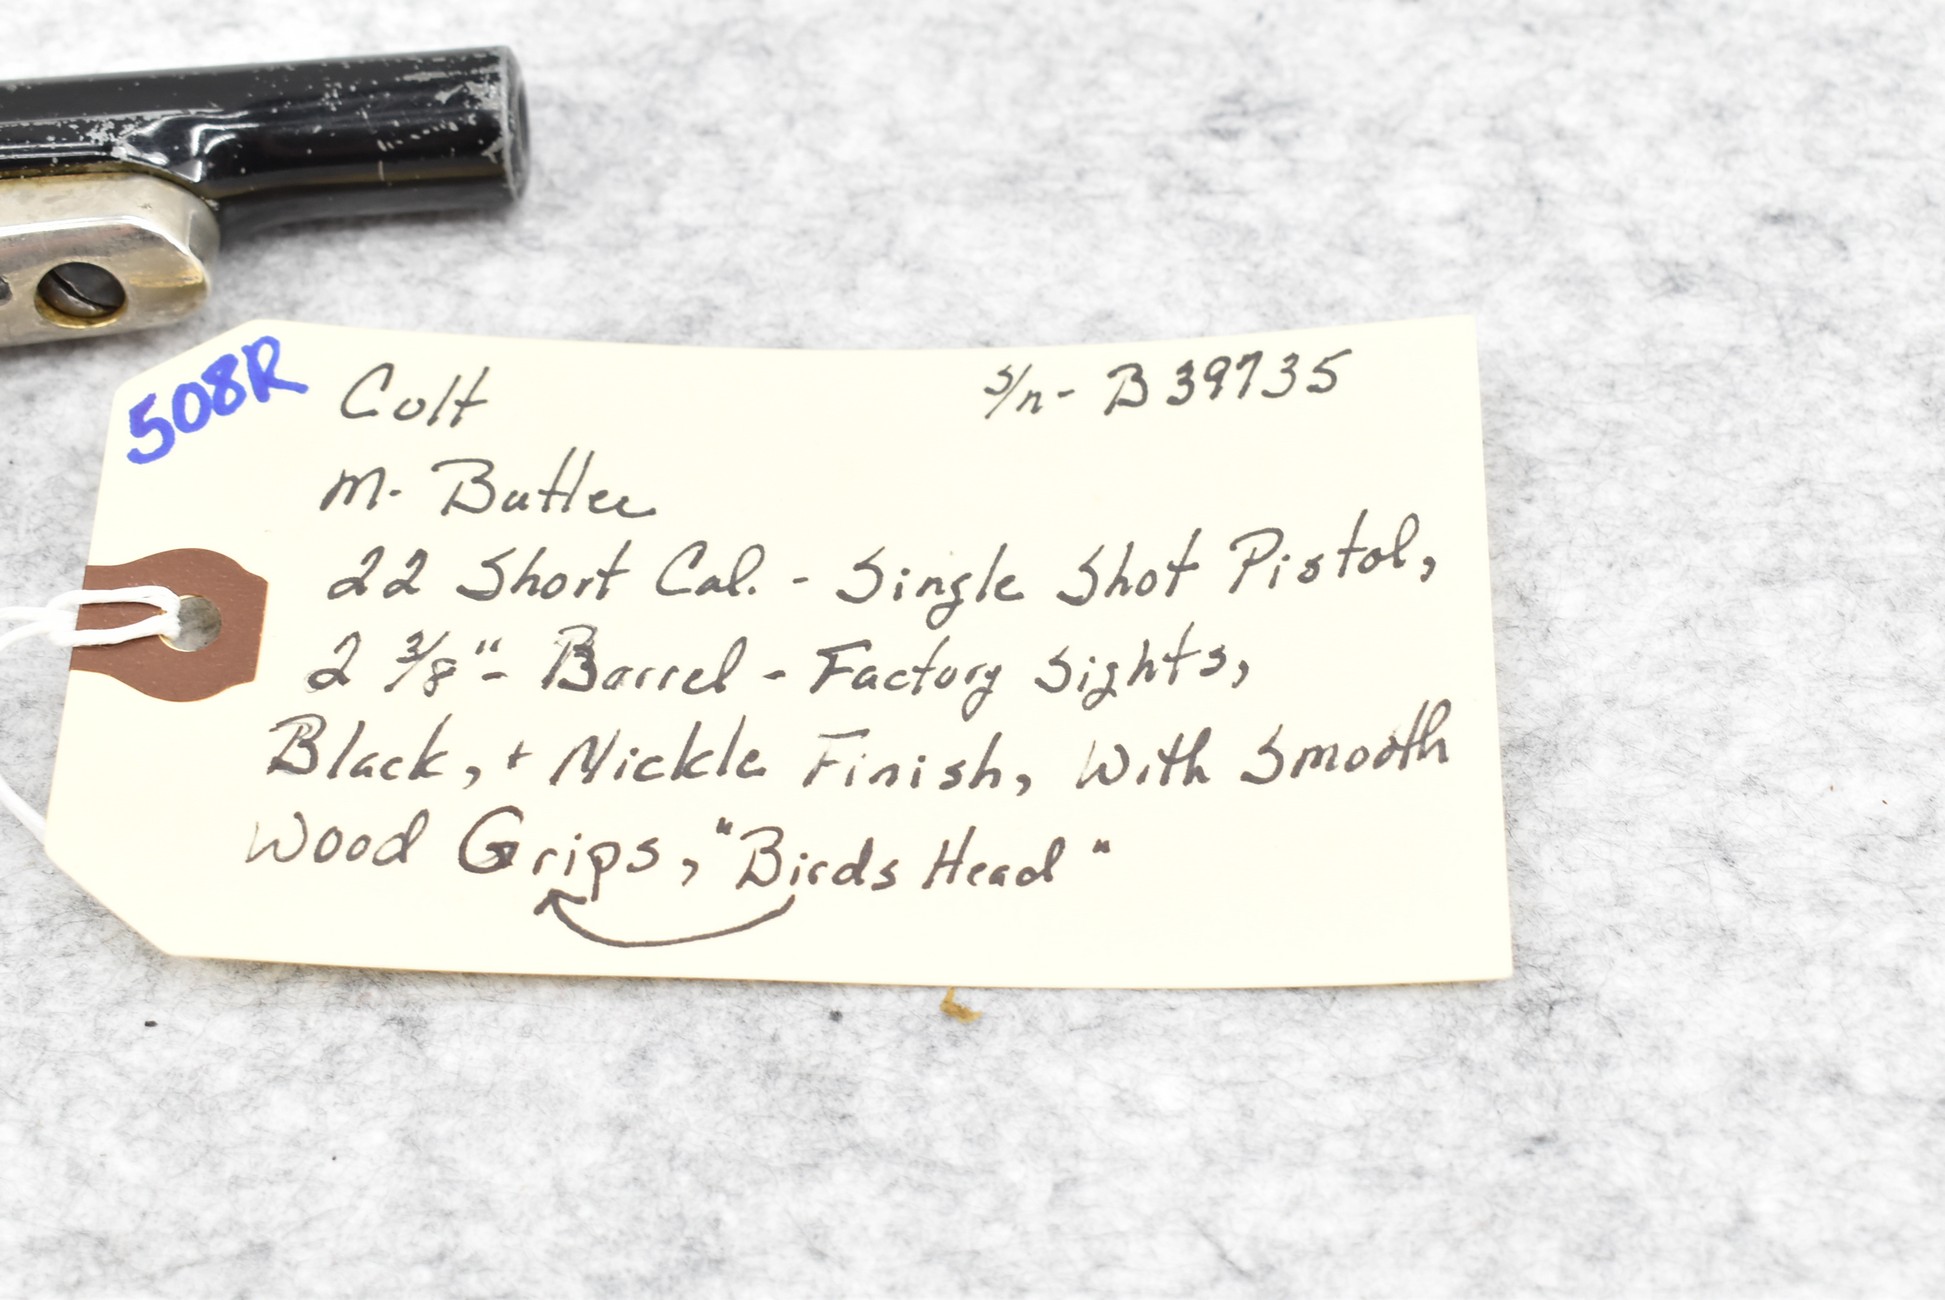 508R Colt s/n- B39735
M. Butler
22 Short Cal. - Single Shot Pistol,
2 3/8"- Barrel - Factory Sights,
Black, + Nickle Finish, With Smooth
Wood Grips, "Birds Head"